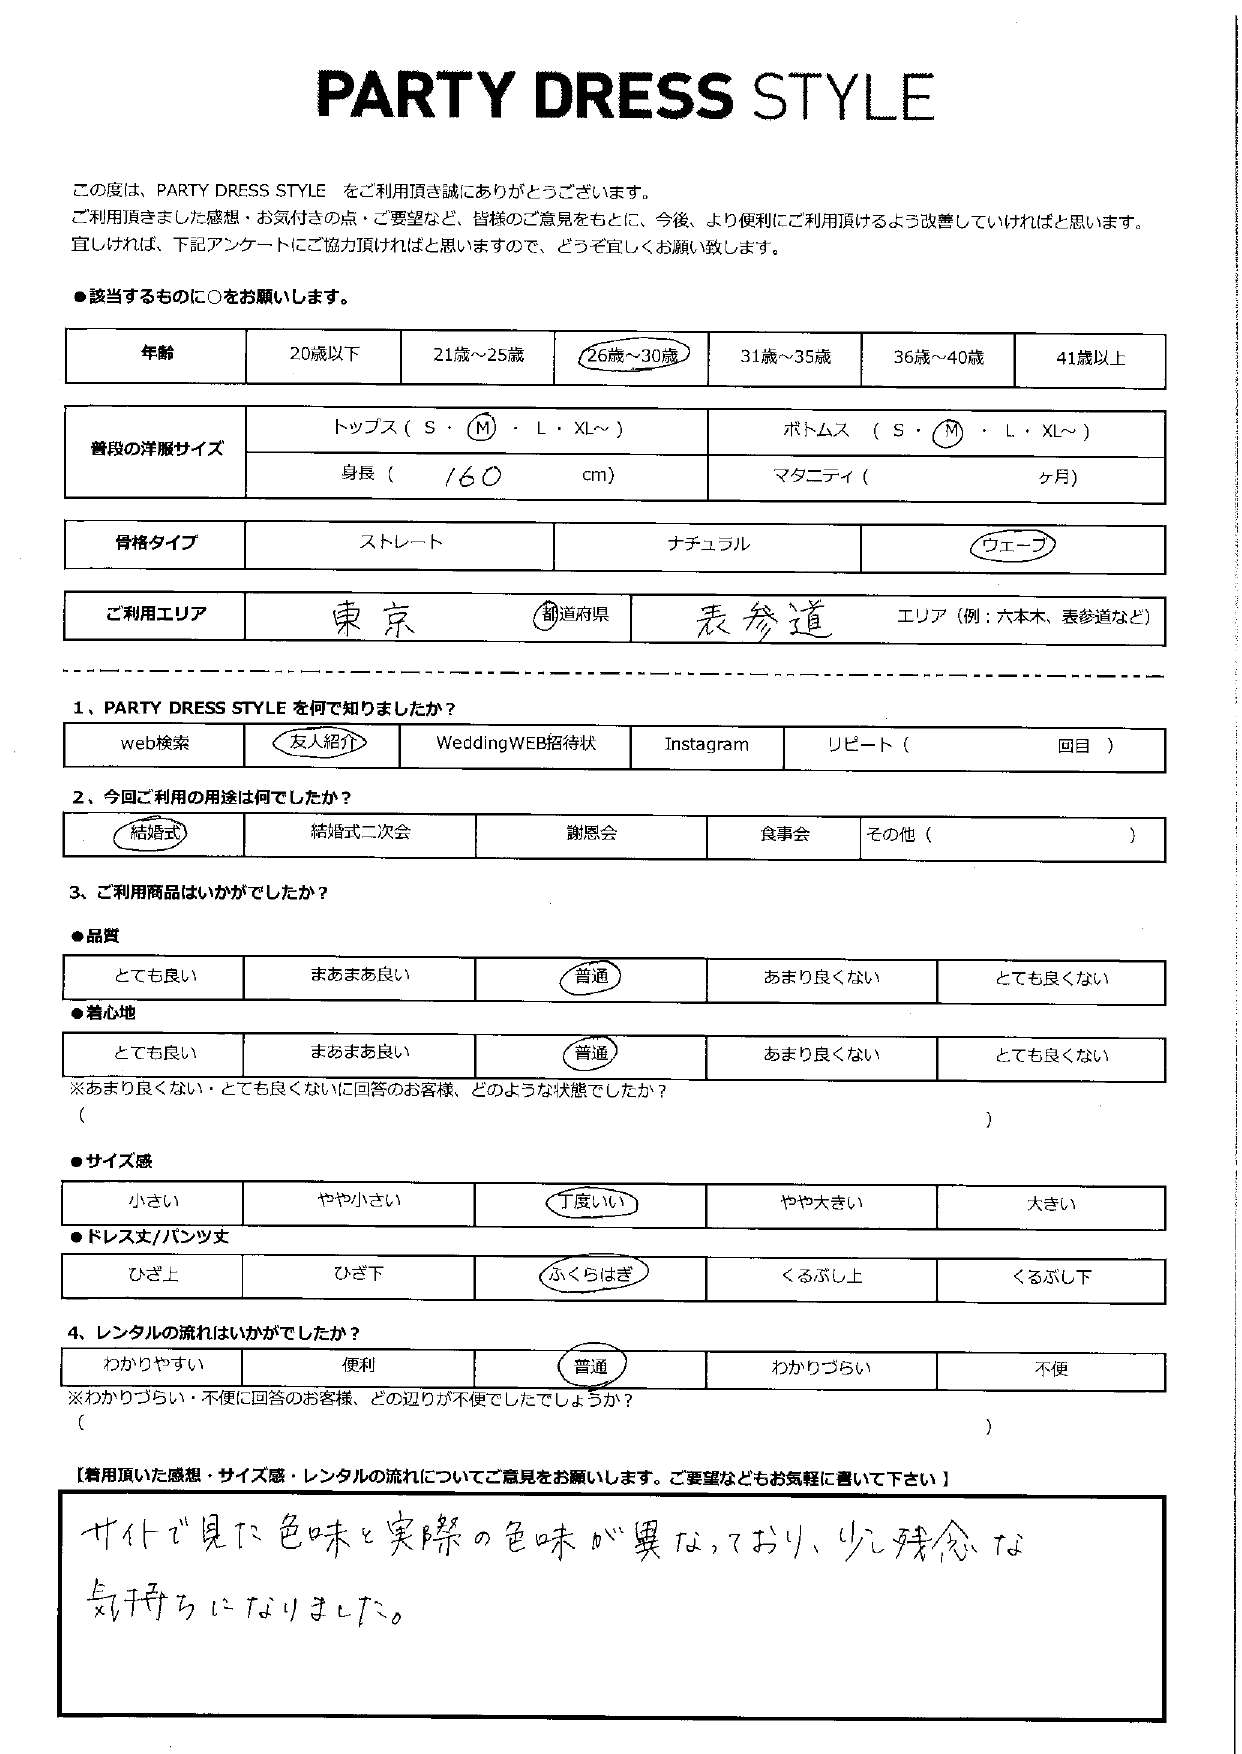 PARTY DRESS STYLE
この度は、PARTY DRESS STYLE　をご利用頂き誠にありがとうございます。
ご利用頂きました感想・お気付きの点・ご要望など、皆様のご意見をもとに、今後、より便利にご利用頂けるよう改善していければと思います。
宜しければ、下記アンケートにご協力頂ければと思いますので、どうぞ宜しくお願い致します。
●該当するものに○をお願いします。
年齢 20歳以下 21歳～25歳 26歳～30歳 31歳～35歳 36歳～40歳 41歳以上
普段の洋服サイズ トップス ( S ・ M ・ L ・ XL～ ) ボトムス ( S ・ M ・ L ・ XL～ )
身長 ( 160 cm) マタニティ ( ヶ月)
骨格タイプ ストレート ナチュラル ウェーブ
ご利用エリア 東京 都道府県 表参道 エリア（例：六本木、表参道など）
1、PARTY DRESS STYLE を何で知りましたか？
web検索 友人紹介 WeddingWEB招待状 Instagram リピート ( 回目 )
2、今回ご利用の用途は何でしたか？
結婚式 結婚式二次会 謝恩会 食事会 その他 ( )
3、ご利用商品はいかがでしたか？
●品質
とても良い まあまあ良い 普通 あまり良くない とても良くない
●着心地
とても良い まあまあ良い 普通 あまり良くない とても良くない
※あまり良くない・とても良くないに回答のお客様、どのような状態でしたか？
( )
●サイズ感
小さい やや小さい 丁度いい やや大きい 大きい
●ドレス丈/パンツ丈
ひざ上 ひざ下 ふくらはぎ くるぶし上 くるぶし下
4、レンタルの流れはいかがでしたか？
わかりやすい 便利 普通 わかりづらい 不便
※わかりづらい・不便に回答のお客様、どの辺りが不便でしたでしょうか？
( )
【着用頂いた感想・サイズ感・レンタルの流れについてご意見をお願いします。ご要望などもお気軽に書いて下さい 】
サイトで見た色味と実際の色味が異なっており、少し残念な
気持ちになりました。